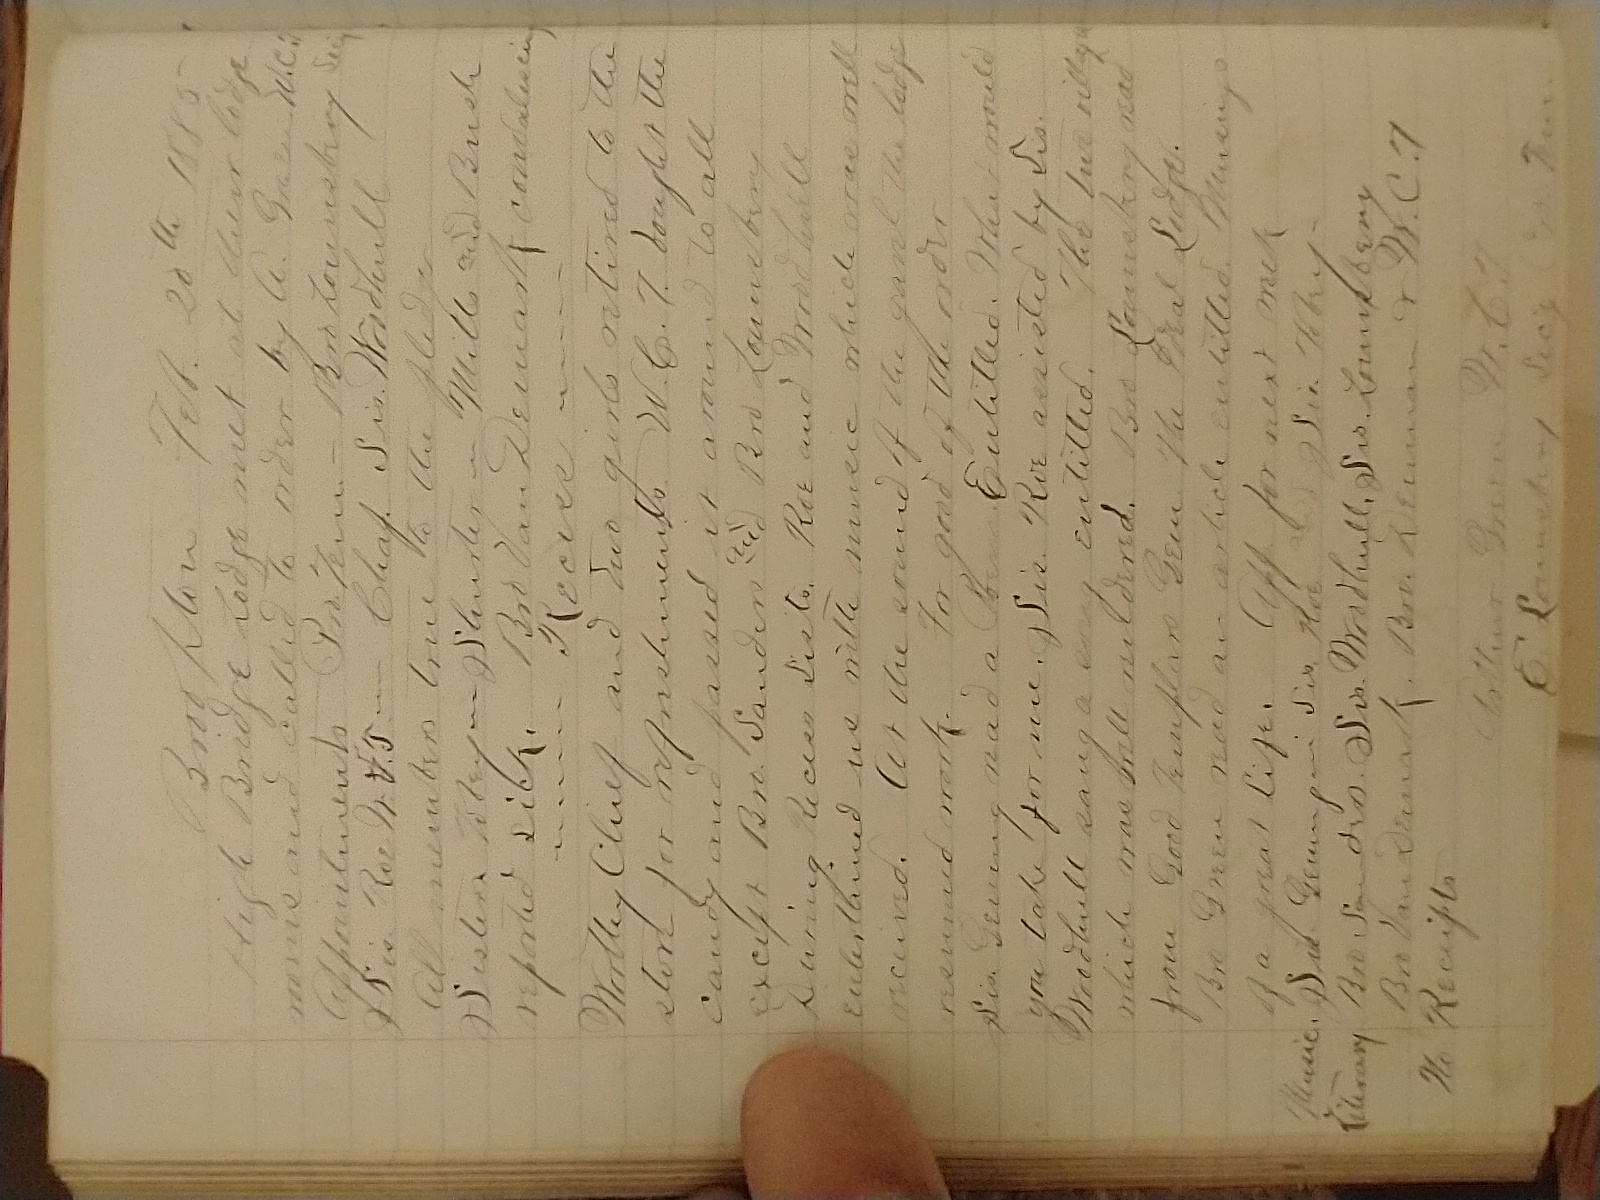 Brookton Feb. 20th 1885
High Bridge Lodge met at their lodge
rooms and called to order by A. Green W.C.T
Appointments Pro. Tem. — Bro Lounsbery Secy
Sis. Roe W.V.T. — Chap. Sis. Woodhull
All members true to the pledge
Sisters Tobey — Shurter — Mills and Bush
reported sick. Bro Van Demark convalescing
—— Recess ——
Worthy Chief and two girls retired to the
store for refreshments. W.C.T. bought the
candy and passed it around to all
except Bro. Sanders and Bro Lounsbery
During Recess Sists. Roe and Woodhull
entertained us with music which was well
received. At the sound of the gavel the lodge
resumed work. For good of the order
Sis. Genung read a Poem Entitled. What would
you take for me. Sis. Roe assisted by Sis.
Woodhull sang a song entitled. The two villages
which was well rendered. Bro Lounsbery read
from Good Templars Gem. The Ideal Lodge.
Bro Green read an article entitled. Musings
of a great Life. App. for next week
Music. Sis. Genung — Sis. Roe and Sis. Tobey —
Literary Bro. Sanders. Sis. Woodhull, Sis. Lounsbery
Bro Van Demark. Bro. Denman & W.C.T
No Receipts
Arthur Green W.C.T
E Lounsbery Secy Pro. Tem.